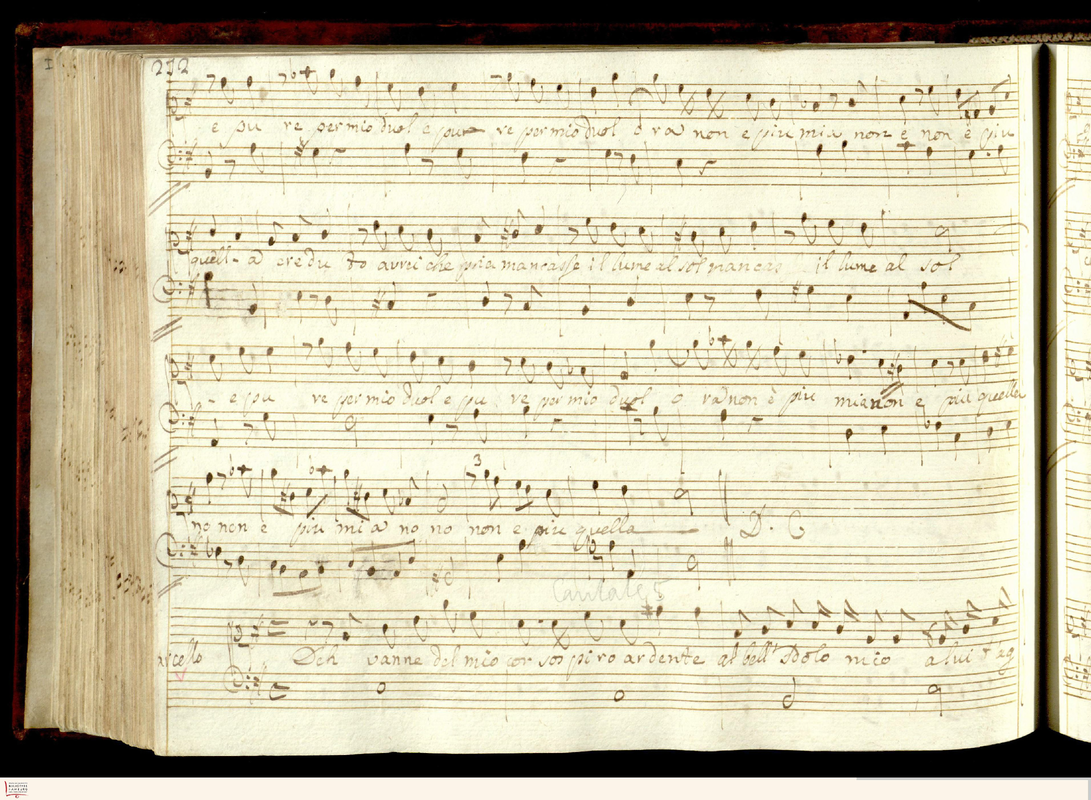 272
e pu re per mio duol e pur re per mio duol o ra non e piu mia non e non è piu
quell a credu to avrei che pria mancasse il lume al sol mancas il lume al sol
e pu re per mio duol e pu re per mio duol o ra non è piu mia non e piu quella
no non e piu mi a no no non e piu quella D. C
3
Cantata 5
arcello Deh vanne del mio cor sospiro ardente al bell' Idolo mio a lui